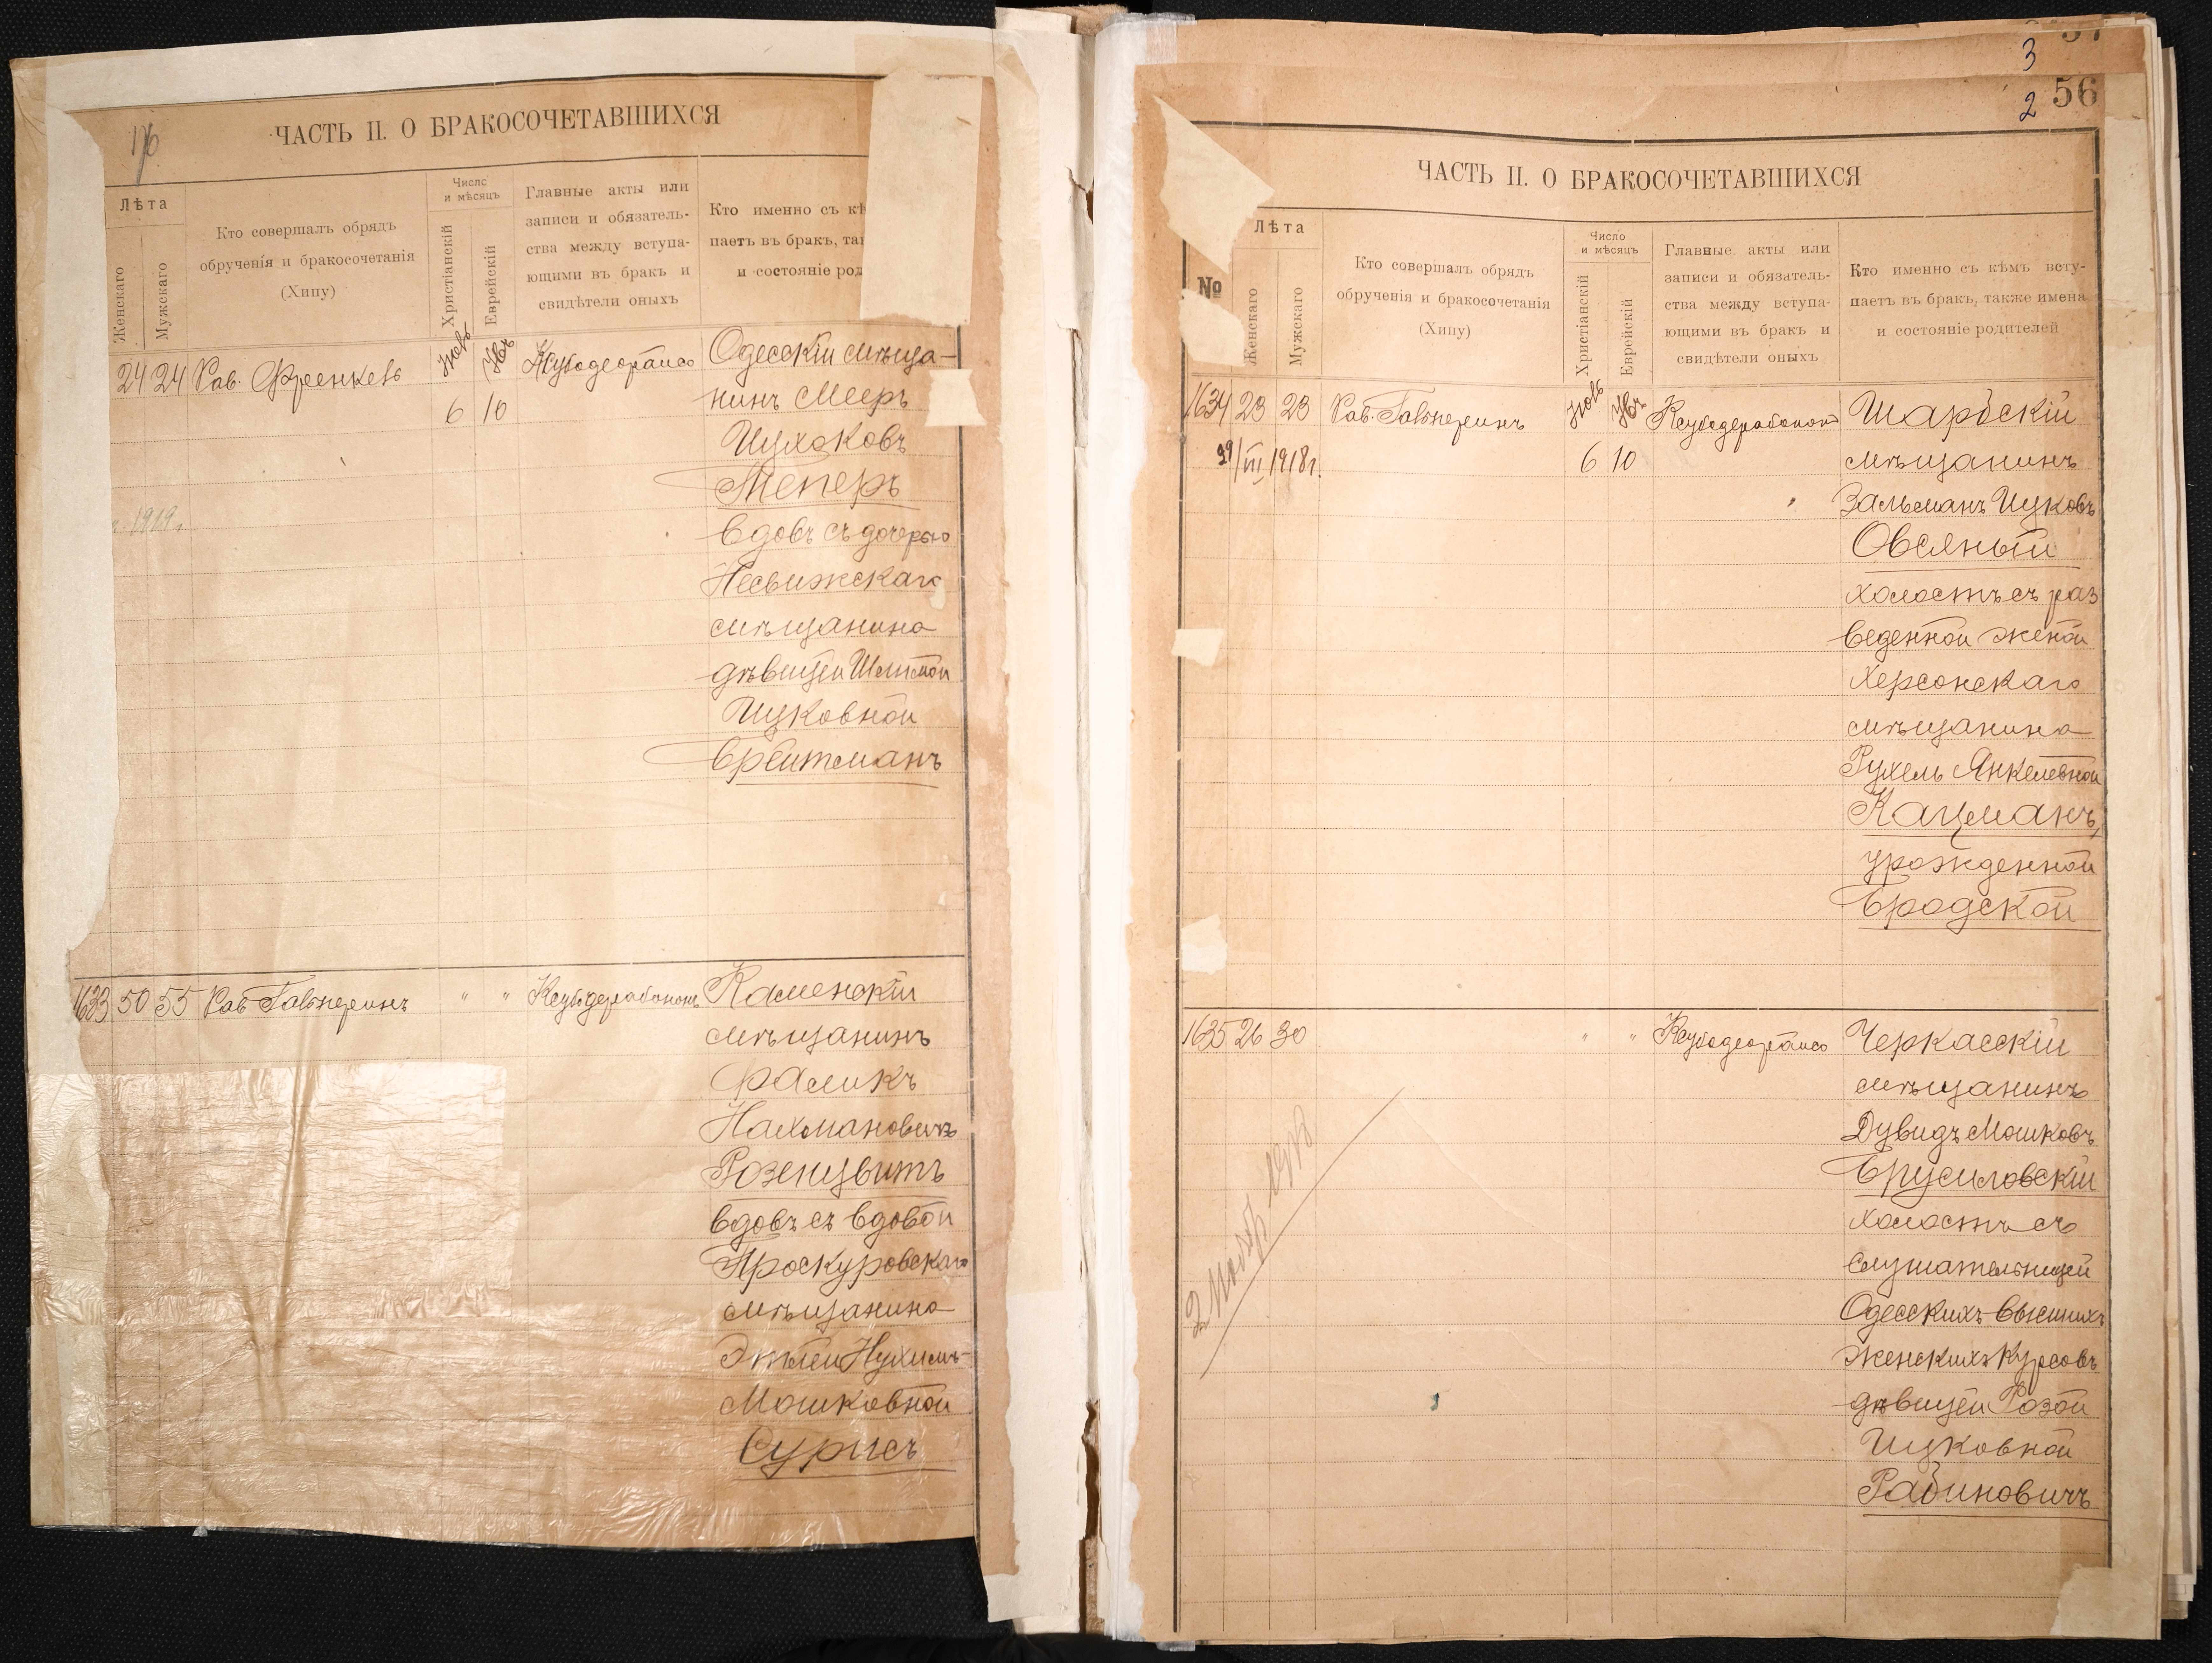 176
ЧАСТЬ II. О БРАКОСОЧЕТАВШИХСЯ
Лѣта
Женскаго
Мужскаго
Кто совершалъ обрядъ
обрученія и бракосочетанія
(Хипу)
Число
и мѣсяцъ
Христіанскій
Еврейскій
Главные акты или
записи и обязатель-
ства между вступа-
ющими въ бракъ и
свидѣтели оныхъ
Кто именно съ кѣ
паетъ въ бракъ, так
и состояніе род
24 24 Рав. Френкель
6 10
Одесскій мѣща-
нинъ Мееръ
Ицхоковъ
Теперъ
вдовъ съ дочерью
Несвижскаго
мѣщанина
дѣвицей
Ицковной
Брейтманъ
1919
1633 50 55 Рав Гальперинъ " "
Каменскій
мѣщанинъ
Фаликъ
Нахмановичъ
Розенцвитъ
вдовъ съ вдовой
Проскуровскаго
мѣщанина
Этлей Нухимъ-
Мошковной
Сурисъ
3
2
56
ЧАСТЬ II. О БРАКОСОЧЕТАВШИХСЯ
№
Лѣта
Женскаго
Мужскаго
Кто совершалъ обрядъ
обрученія и бракосочетанія
(Хипу)
Число
и мѣсяцъ
Христіанскій
Еврейскій
Главные акты или
записи и обязатель-
ства между вступа-
ющими въ бракъ и
свидѣтели оныхъ
Кто именно съ кѣмъ всту-
паетъ въ бракъ, также имена
и состояніе родителей
1634 23 23 Рав. Гальперинъ
29/III 1918г.
6 10
Шаргескій
мѣщанинъ
Зальманъ Ицковъ
Овсяный
холостъ съ раз
веденной женой
Херсонскаго
мѣщанина
Рухель Янкелевной
Кацманъ,
урожденной
Бродской
1635 26 30 " "
Черкасскій
мѣщанинъ
Дувидъ Мошковъ
Брусиловскій
холостъ съ
слушательницей
Одесскихъ Высшихъ
Женскихъ Курсовъ
дѣвицей Розой
Ицковной
Рабиновичъ